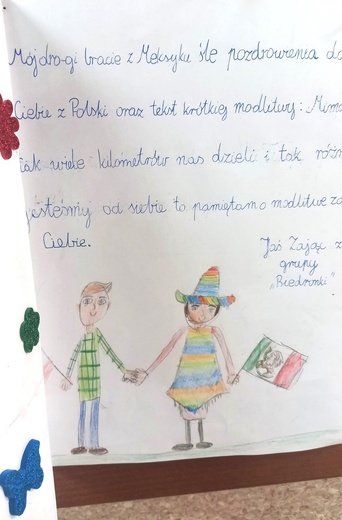 Mój drogi bracie z Meksyku ślę pozdrowienia d
Ciebie z Polski oraz tekst krótkiej modlitwy: Mimo
tak wiele kilometrów nas dzieli i tak różn
jesteśmy od siebie to pamiętam o modlitwie za
Ciebie.
Jaś Zając z
grupy
„Biedronki"